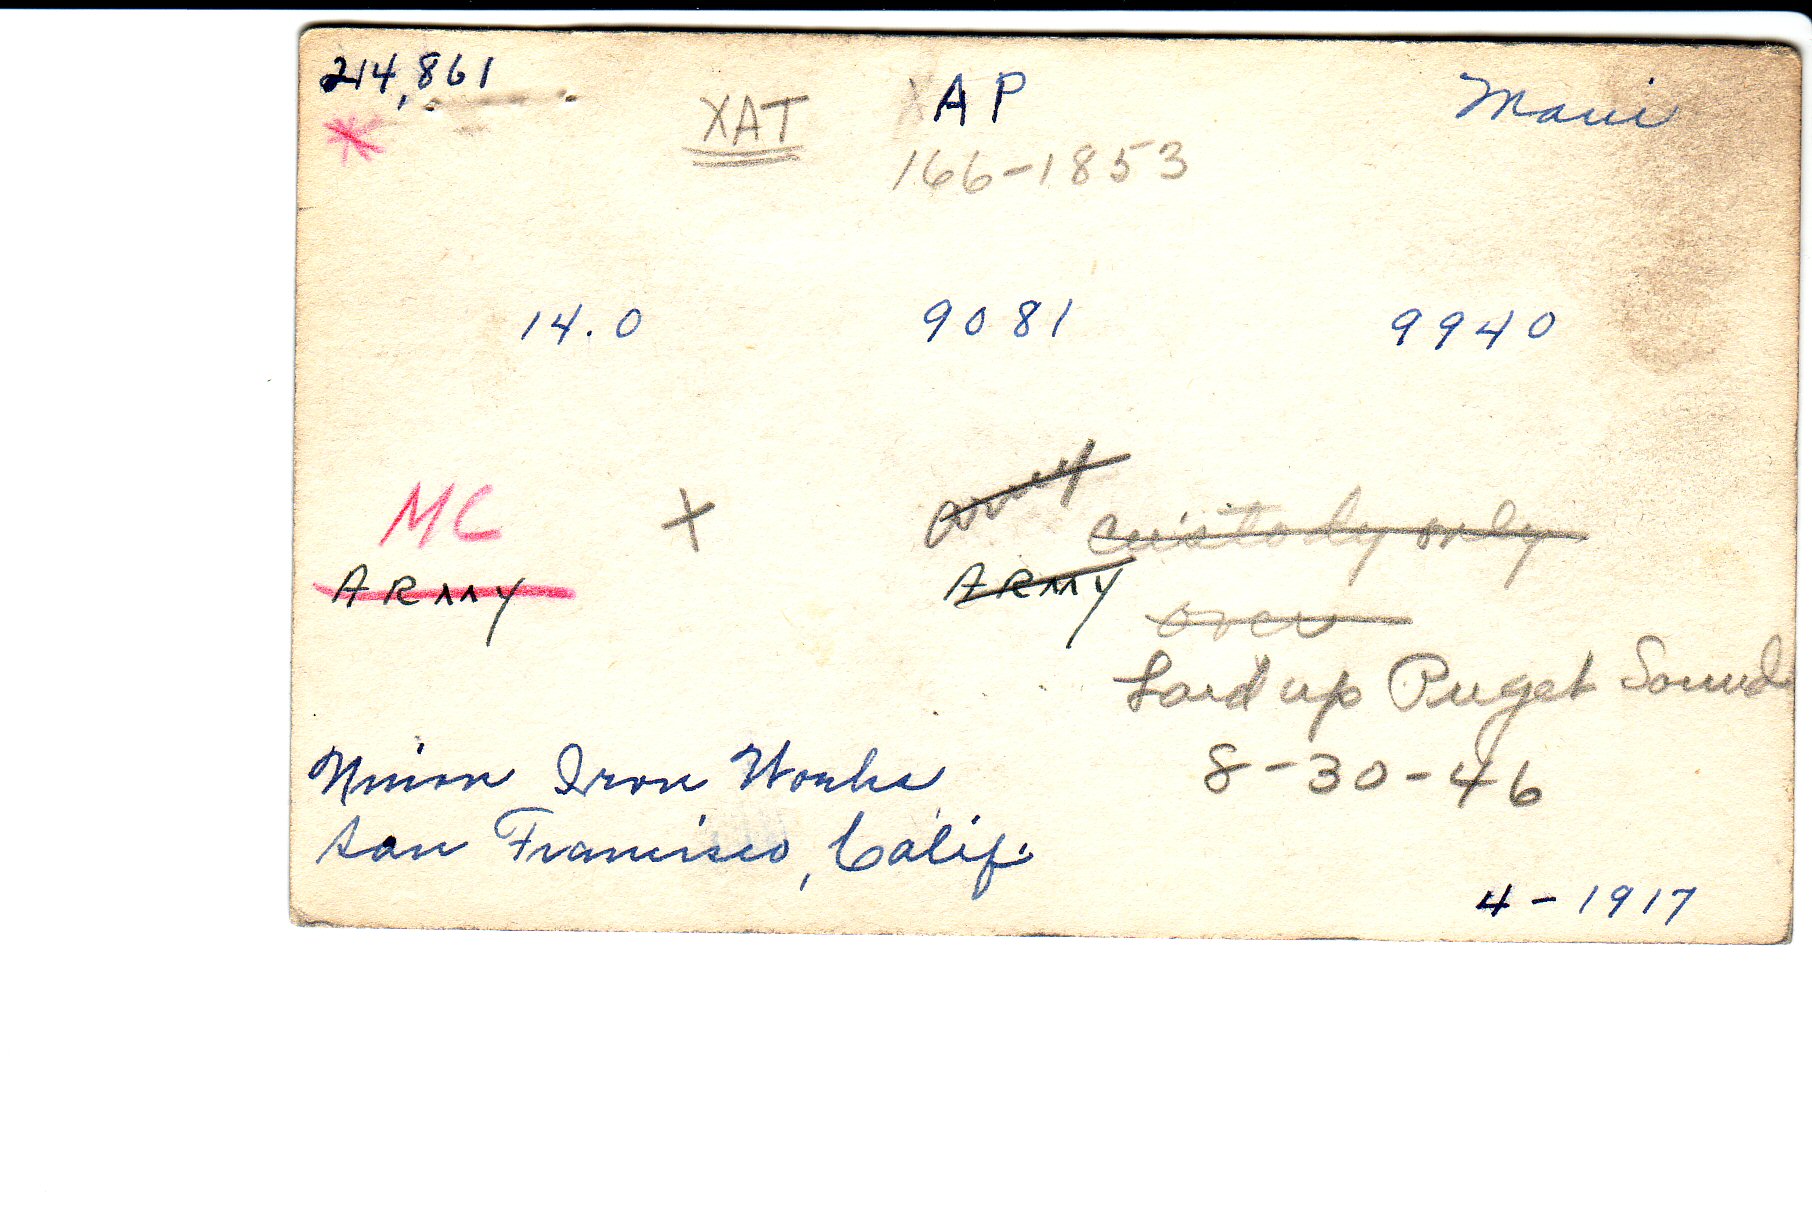 214,861 XAT XAP Maui
166-1853
14.0 9081 9940
MC X army custody only
ARMY ARMY
over
Laid up Puget Sound
8-30-46
Union Iron Works
San Francisco, Calif.
4-1917